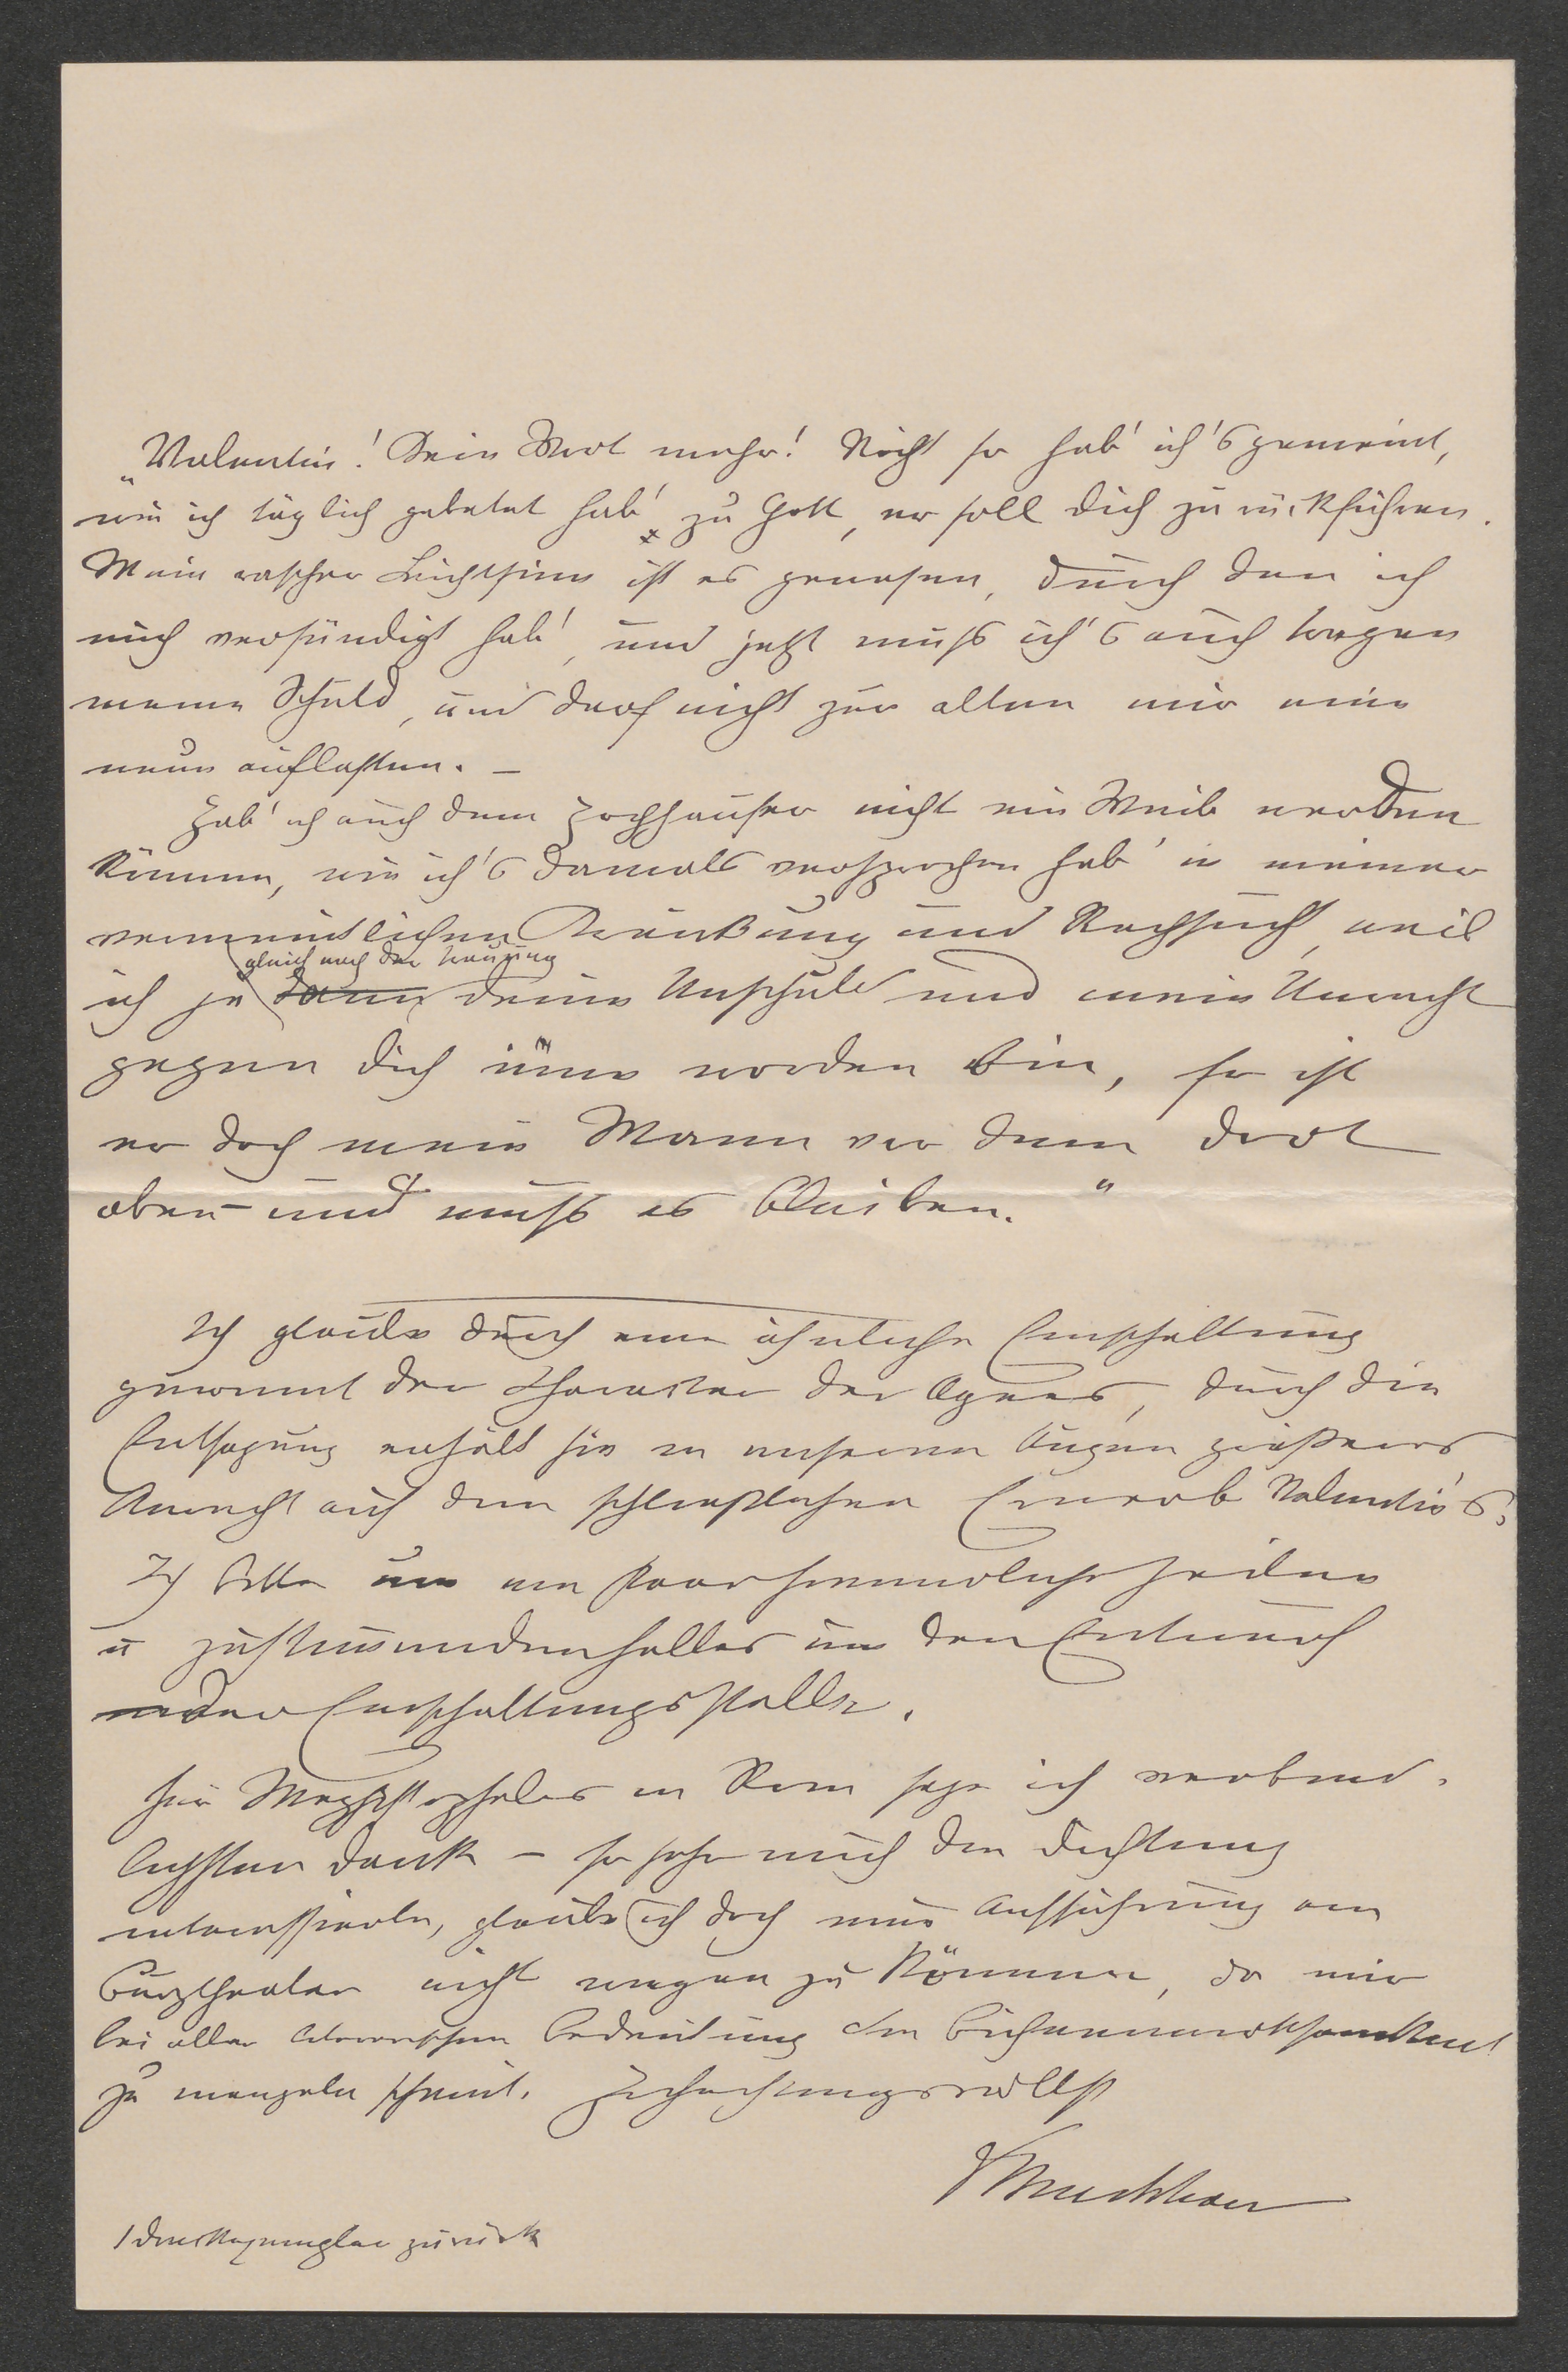 „Valentin! Kein Wort mehr! Nicht so hab' ich's gemeint,
wie ich täglich gebetet hab' zu Gott, er soll dich zurückführen.
Mein rascher Leichtsinn ist es gewesen, durch den ich
mich versündigt hab', und jetzt muß ich's auch tragen
meine Schuld, und darf nicht zur alten mir eine
neue auflasten. –
Hab' ich auch dem Hochhauser nicht ein Weib werden
können, wie ich's damals versprochen hab' in meiner
vermeintlichen Kränkung und Rachsucht, weil
gleich nach der Trauung
ich ja dann deine Unschuld und mein Unrecht
gegen dich inne worden bin, so ist
er doch mein Mann vor dem dort
oben und muß es bleiben."
Ich glaube durch eine ähnliche Einschaltung
gewinnt der Charakter der Agnes, durch die
Entsagung erhält sie in unseren Augen größeres
Anrecht auf den schließlichen Erwerb Valentin's.
Ich bitte um ein paar freundliche Zeilen
u zustimmendenfalles um den Entwurf
der Einschaltungsstelle.
Für Mephistopheles in Rom sage ich verbind-
lichsten Dank – so sehr mich die Dichtung
interessierte, glaube ich doch eine Aufführung am
Burgtheater nicht wagen zu können, da mir
bei aller literarischen Bedeutung die Bühnenwirksamkeit
zu mangeln scheint. Hochachtungsvollst
1 Druckexemplar zurück